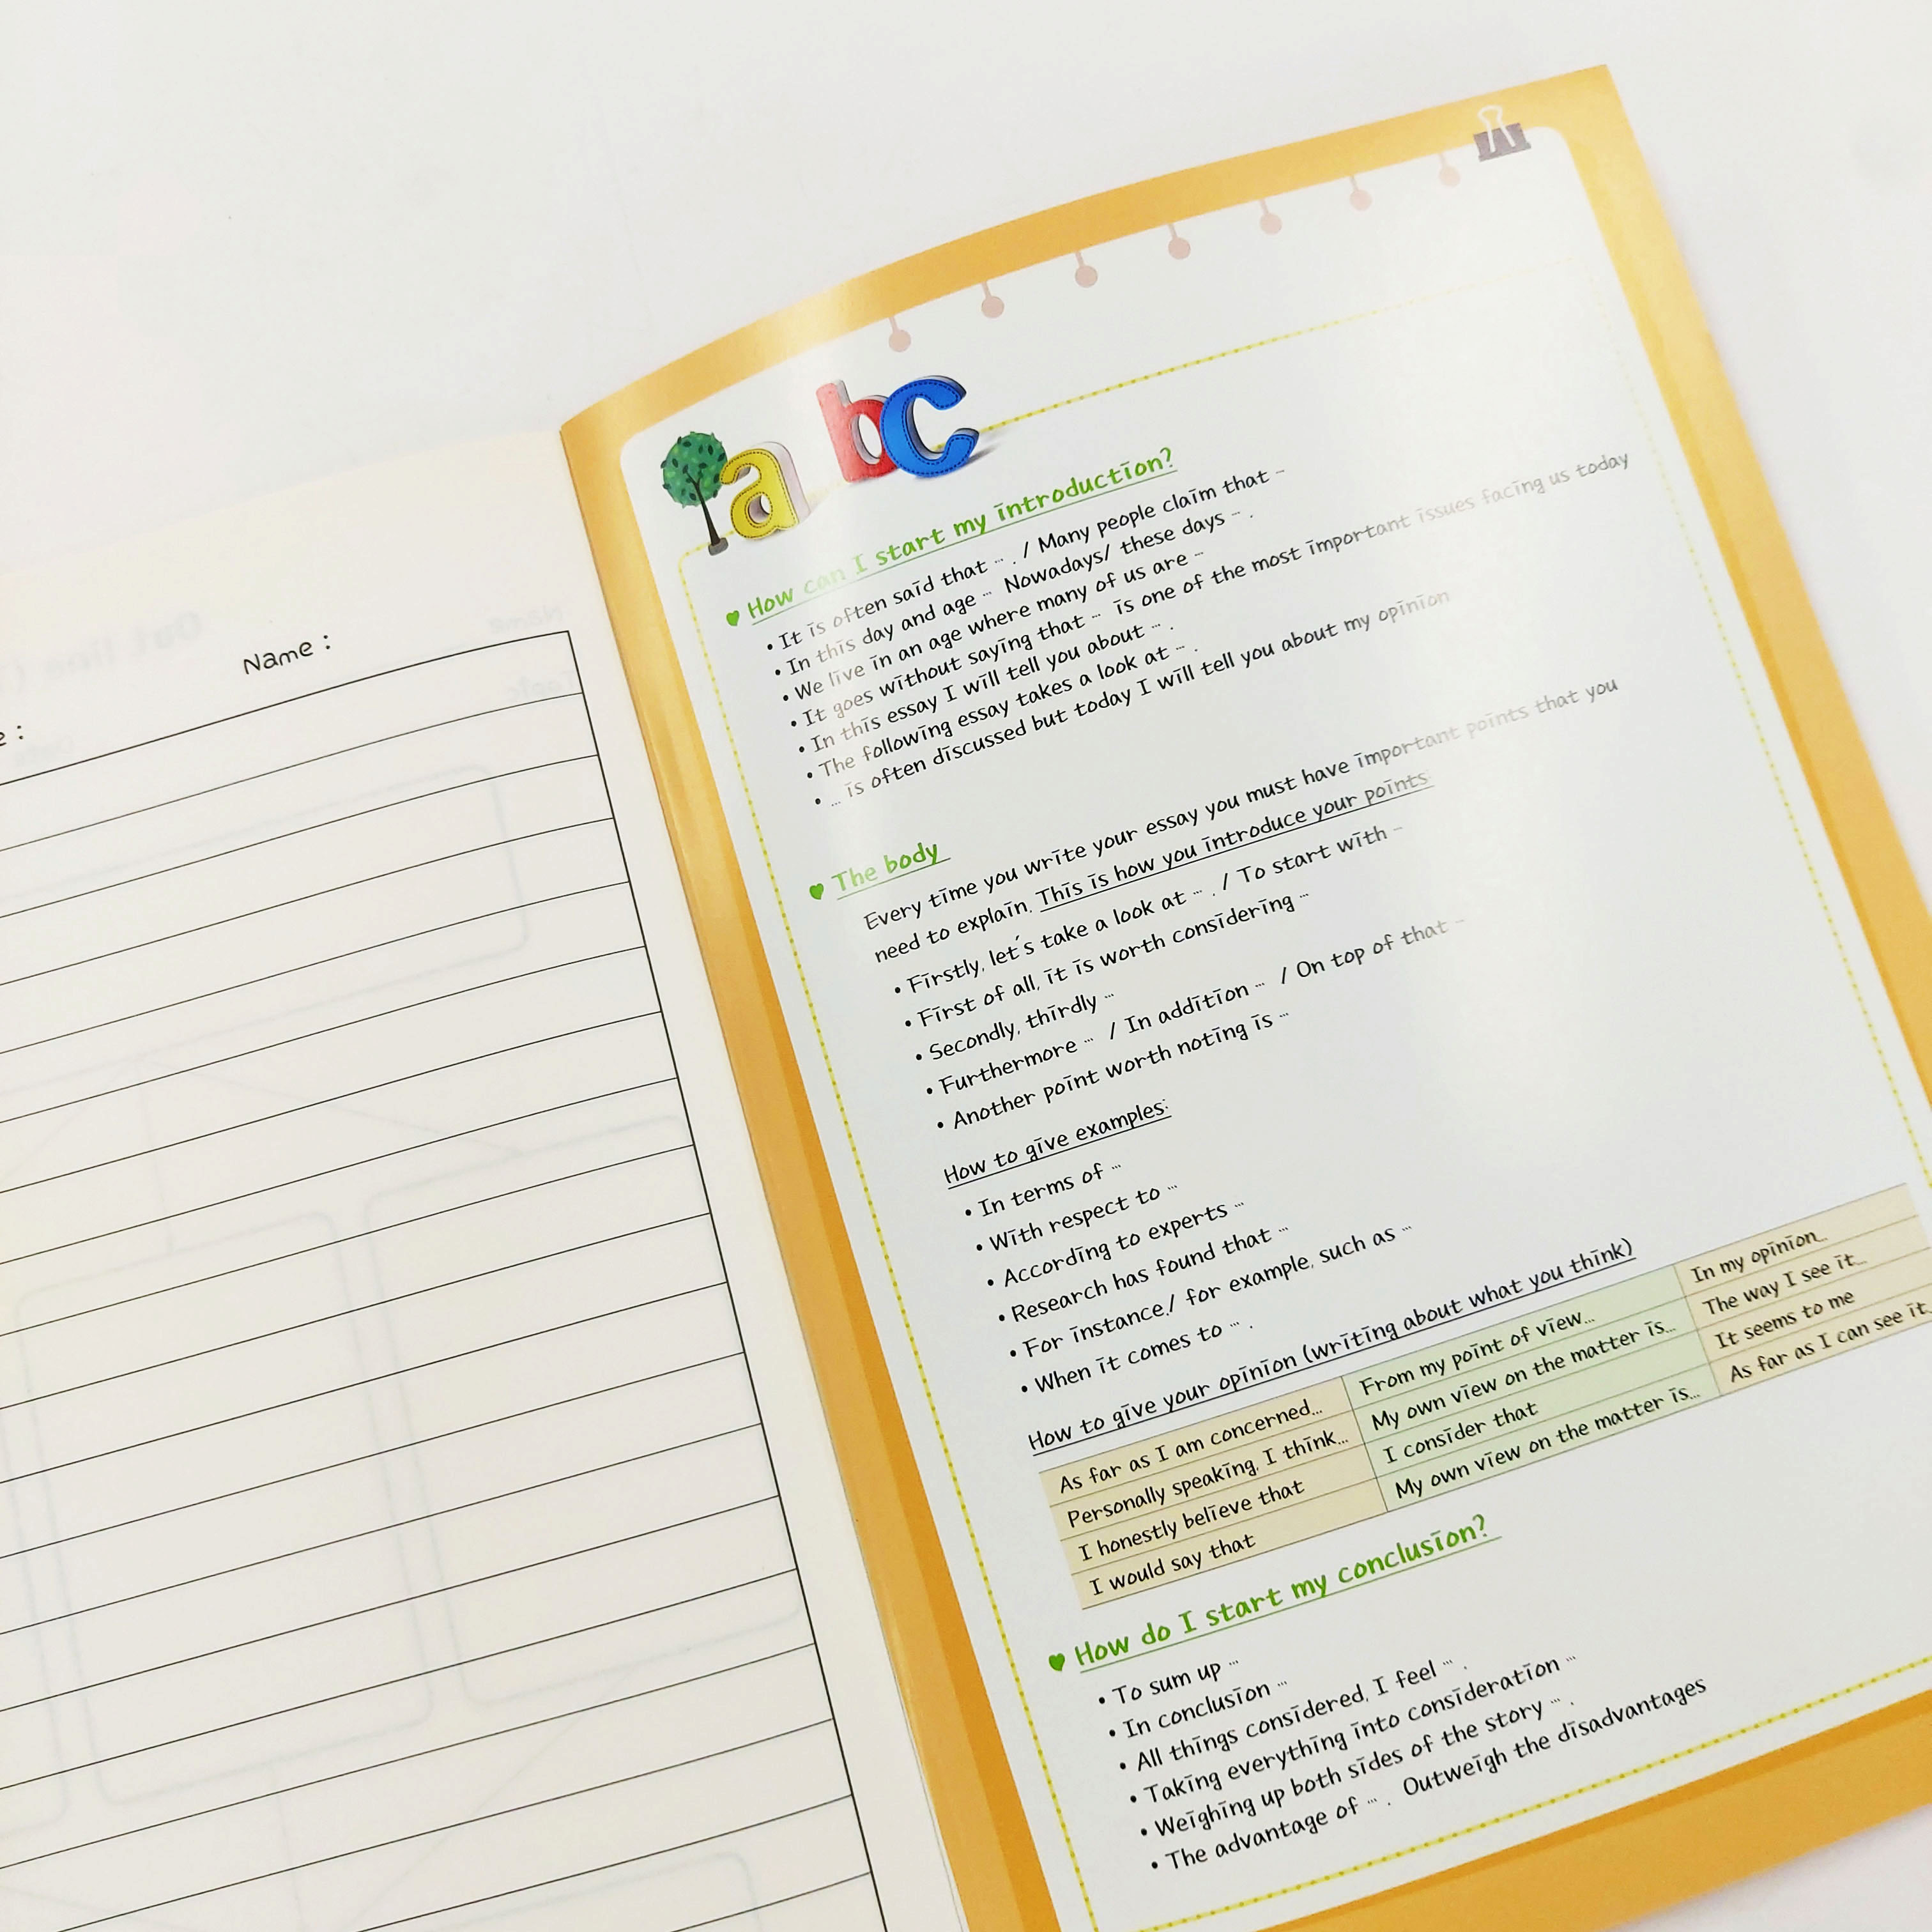 Name :
e :
a bc
How can I start my introduction?
• It is often said that ... . / Many people claim that ...
• In this day and age ... Nowadays/ these days ... .
• We live in an age where many of us are ...
• It goes without saying that ... is one of the most important issues facing us today
• In this essay I will tell you about ... .
• The following essay takes a look at ... .
• ... is often discussed but today I will tell you about my opinion
The body
Every time you write your essay you must have important points that you
need to explain. This is how you introduce your points:
• Firstly, let's take a look at ... . / To start with ...
• First of all, it is worth considering ...
• Secondly, thirdly ...
• Furthermore ... / In addition ... / On top of that ...
• Another point worth noting is ...
How to give examples:
• In terms of ...
• With respect to ...
• According to experts ...
• Research has found that ...
• For instance,/ for example, such as ...
• When it comes to ... .
How to give your opinion (writing about what you think)
As far as I am concerned... From my point of view... In my opinion...
Personally speaking, I think... My own view on the matter is... The way I see it...
I honestly believe that I consider that It seems to me
I would say that My own view on the matter is... As far as I can see it...
How do I start my conclusion?
• To sum up ...
• In conclusion ...
• All things considered, I feel ... .
• Taking everything into consideration ...
• Weighing up both sides of the story ... .
• The advantage of ... . Outweigh the disadvantages